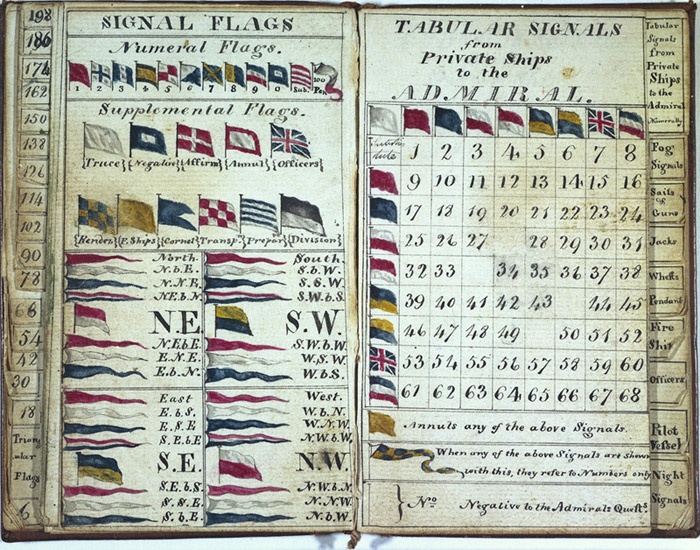 198
186
174
162
150
138
126
114
102
90
78
66
54
42
30
18
Triangular
Flags
6
SIGNAL FLAGS
Numeral Flags.
1 2 3 4 5 6 7 8 9 0 Sub. Pen
100
Supplemental Flags.
Truce Negative Affirm Annul Officers
Rendez F. Ships Cornet Transp. Prepar Division
North.
N.b E.
N.N.E.
N.E.b N.
N.E.
N.E b E.
E.N.E.
E.b.N.
South.
S.b.W.
S.S.W.
S.W.b S.
S.W.
S.W.b.W.
W.S.W.
W.b S.
East
E.b S.
E.S.E
S.E.b E
S.E.
S.E.b S.
S.S.E.
S.b E.
West.
W.b N.
W.N.W.
N.W.b W.
N.W.
N.W.b N.
N.N.W.
N.b W.
TABULAR SIGNALS
from
Private Ships
to the
ADMIRAL.
1 2 3 4 5 6 7 8
9 10 11 12 13 14 15 16
17 18 19 20 21 22 23 24
25 26 27 28 29 30 31
32 33 34 35 36 37 38
39 40 41 42 43 44 45
46 47 48 49 50 51 52
53 54 55 56 57 58 59 60
61 62 63 64 65 66 67 68
Annuls any of the above Signals.
When any of the above Signals are shown
with this, they refer to Numbers only
No Negative to the Admirals Quests.
Tabular
Signals
from
Private
Ships
to the
Admiral
Numerally
Fog
Signals
Sails
&
Guns
Jacks
Whefts
Pendant
Fire
Ship
Officers
Pilot
Vessel
Night
Signals